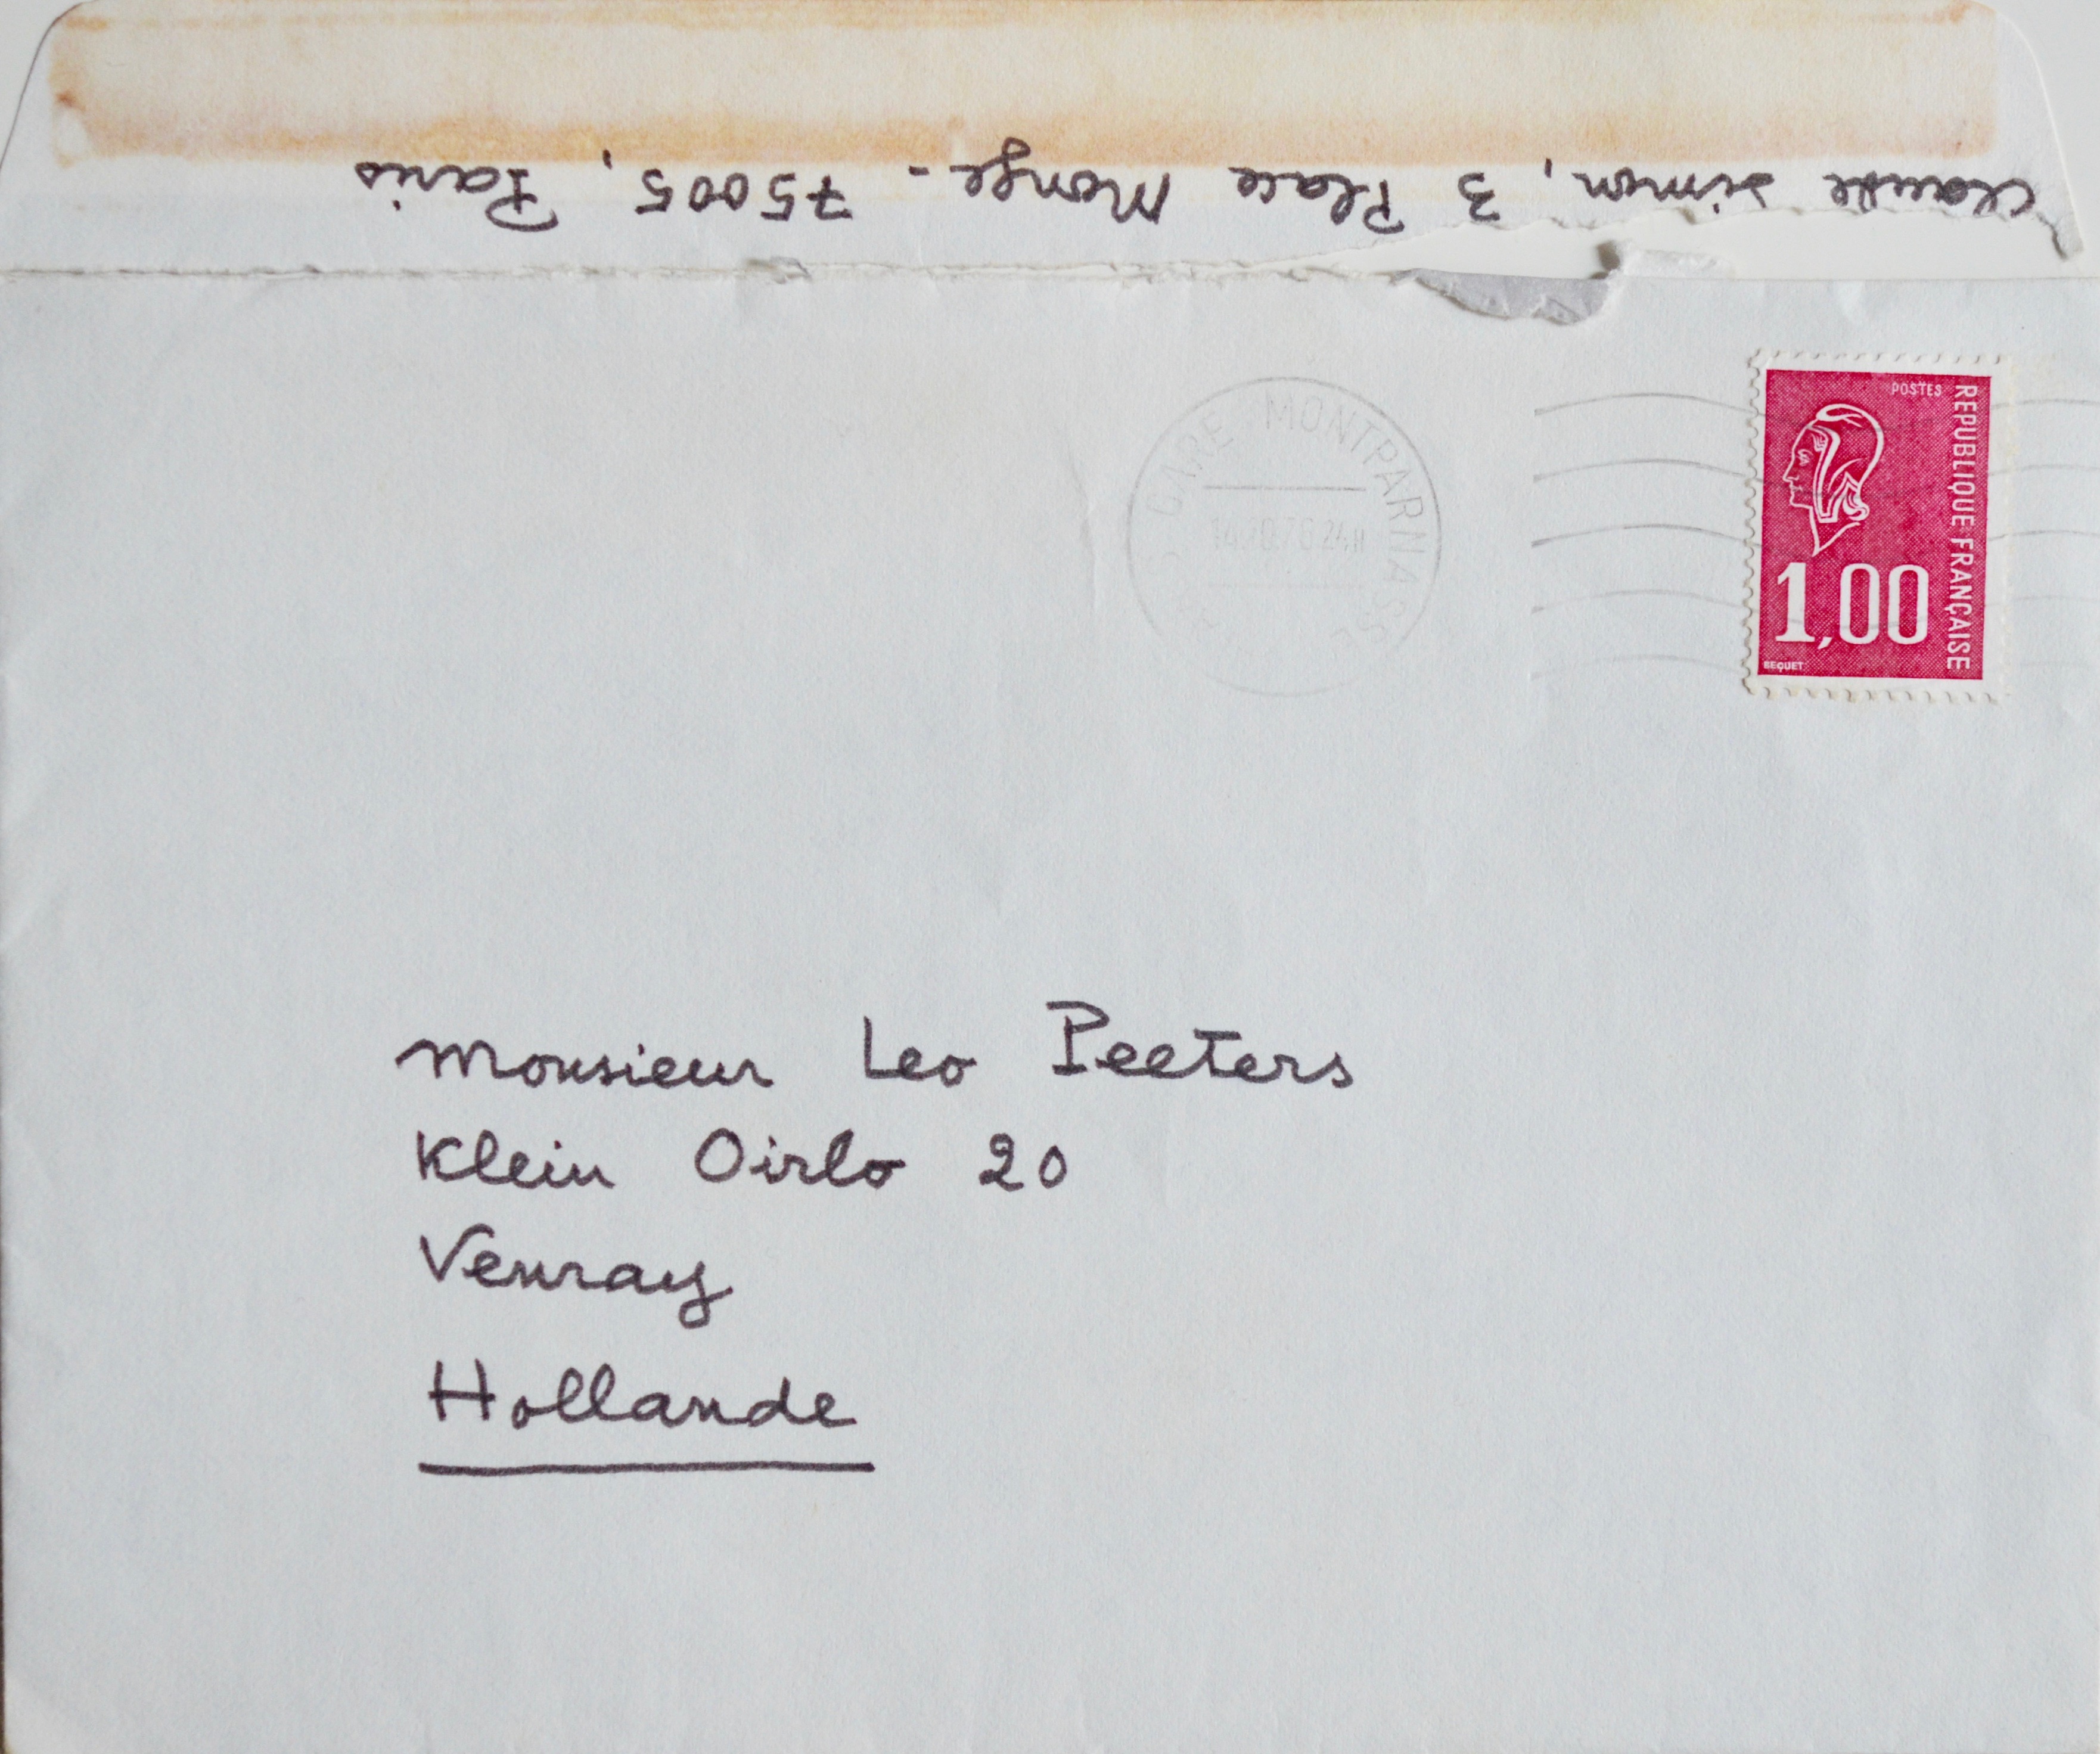 Claude Simon, 3 Place Monge - 75005, Paris
GARE MONTPARNASSE
24H
POSTES
REPUBLIQUE FRANÇAISE
1,00
BEQUET
Monsieur Leo Peeters
Klein Oirlo 20
Venray
Hollande